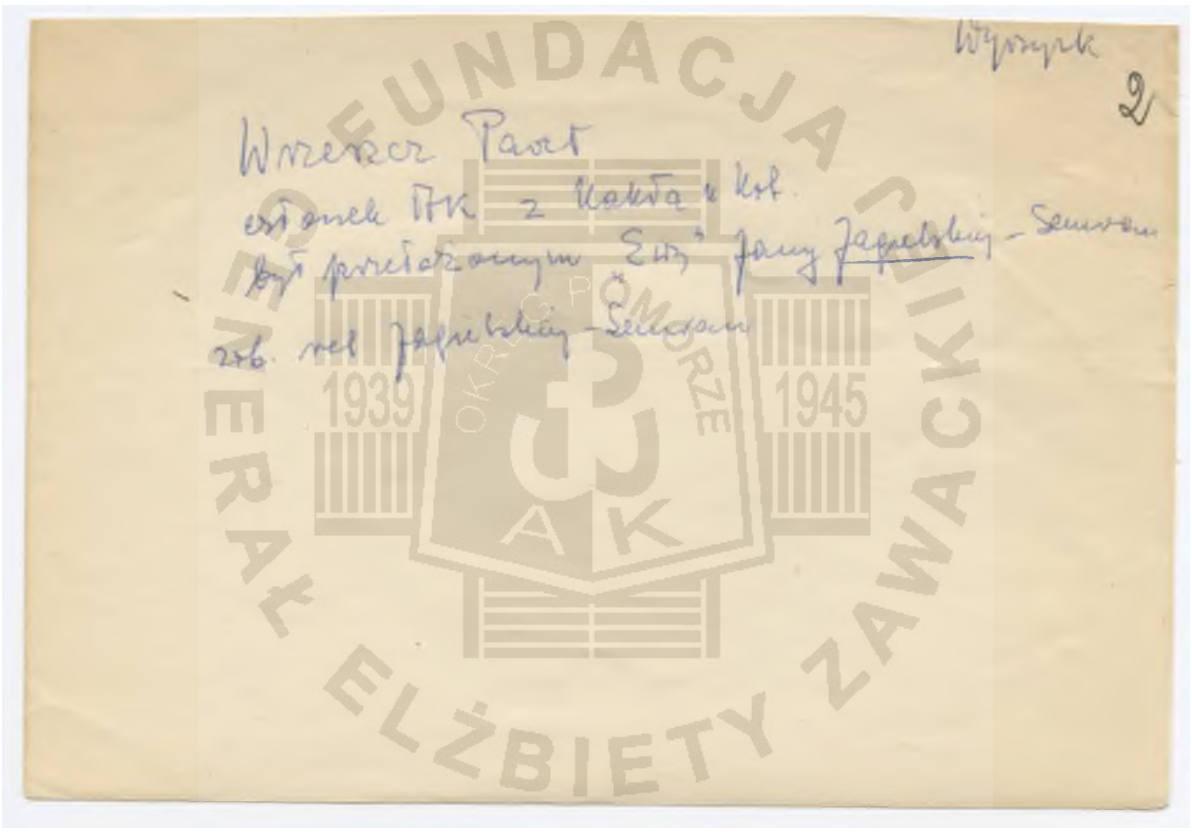 Wyrzysk
2
Wrzeszcz Paweł
członek AK z k.
był przełożonym "Ewy" Jagielskiej - Semrau
zob. rel Jagielskiej - Semrau
FUNDACJA GENERAŁ ELŻBIETY ZAWACKIEJ
OKRĘG POMORZE
1939 1945
AK